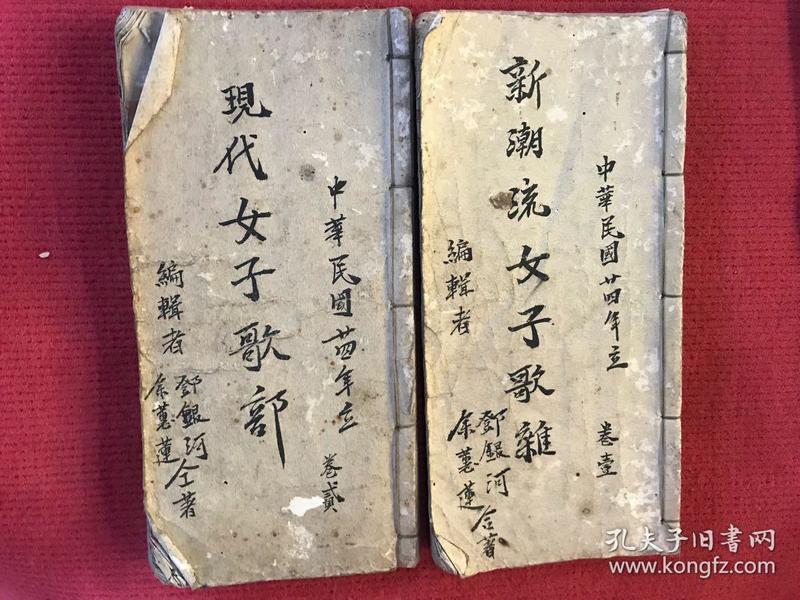 中華民國廿四年立 卷壹
新潮流女子歌雜
編輯者
鄧銀河
余蕙蓮
合著
中華民國廿四年立 卷貳
現代女子歌部
編輯者
鄧銀河
余蕙蓮
仝著
孔夫子旧书网
www.kongfz.com